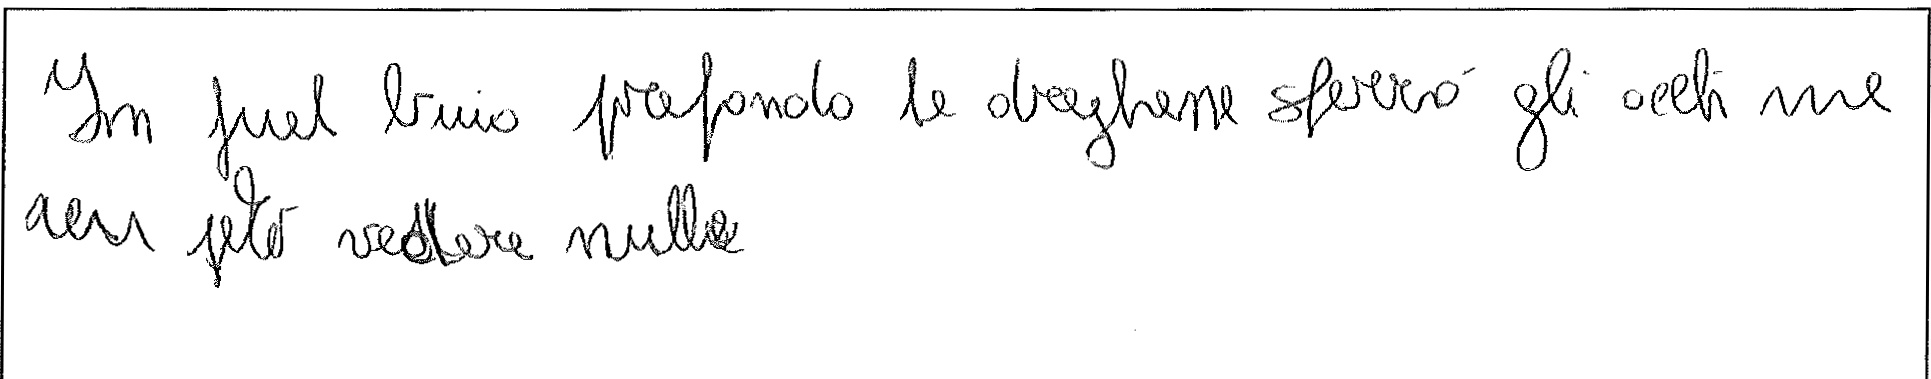 In quel buio profondo la draghessa sferrò gli occhi ma
non potò vedere nulla